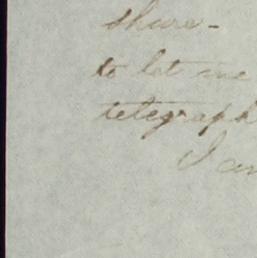 share -
to let me
telegraph
I am